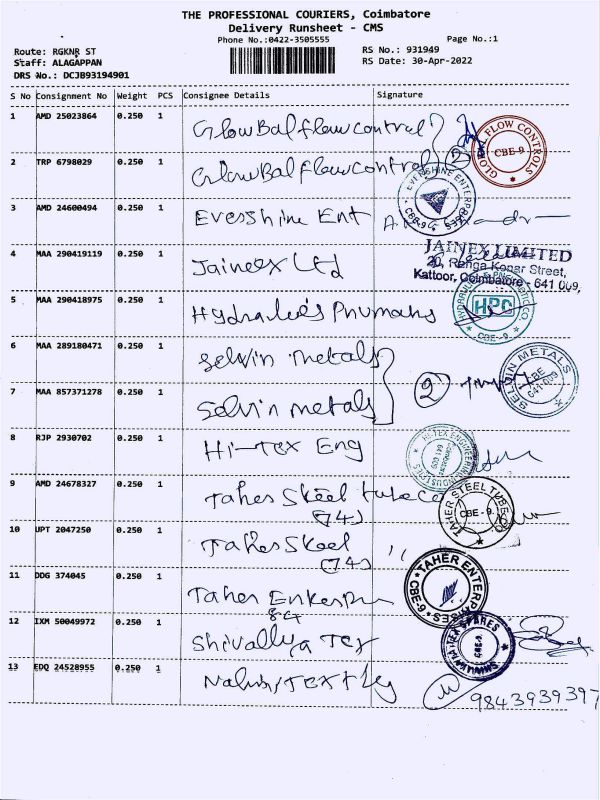 THE PROFESSIONAL COURIERS, Coimbatore
Delivery Runsheet - CMS
Phone No.:0422-3505555
Page No.:1
Route: RGKNR ST
RS No.: 931949
Staff: ALAGAPPAN
RS Date: 30-Apr-2022
DRS No.: DCJB93194901
S No Consignment No Weight PCS Consignee Details Signature
1 AMD 25023864 0.250 1 GlowBal flow control
GLOBAL FLOW CONTROLS CBE-9
2 TRP 6798029 0.250 1 GlowBal flow control 2
EVERSHINE ENTERPRISES CBE-9
3 AMD 24600494 0.250 1 Evesshine Ent
4 MAA 290419119 0.250 1 Jaineex Ltd
JAINEX LIMITED
20, Ranga Konar Street,
Kattoor, Coimbatore - 641 009,
5 MAA 290418975 0.250 1
HYDRAULIC & PNEUMATIC CO HPC CBE-9
6 MAA 289180471 0.250 1 Selvin metals
SELVIN METALS CBE 641-009
7 MAA 857371278 0.250 1 Selvin metals 2
8 RJP 2930702 0.250 1 Hi-Tex Eng
HI-TEX ENGINEERING INDUSTRIES
9 AMD 24678327 0.250 1 Taher Skeel
(74)
TAHER STEEL TUBE CBE-9
10 UPT 2047250 0.250 1 Taher Skeel "
(74)
11 DDG 374045 0.250 1 Taher
84
TAHER ENTERPRISES CBE-9
12 IXM 50049972 0.250 1 Shivallya Tex
SPARES CBE-9
13 EDQ 24528955 0.250 1
9843939397